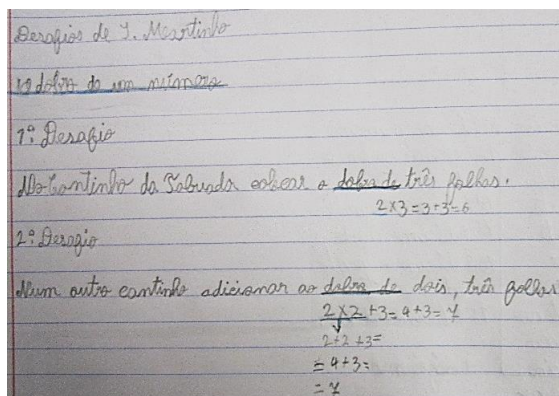 Desafios de S. Martinho
O dobro de um número
1º Desafio
No Cantinho da Tabuada colocar o dobro de três folhas.
2×3=3+3=6
2º Desafio
Num outro cantinho adicionar ao dobro de dois, três folhas
2×2+3=4+3=7
2+2+3=
=4+3=
=7